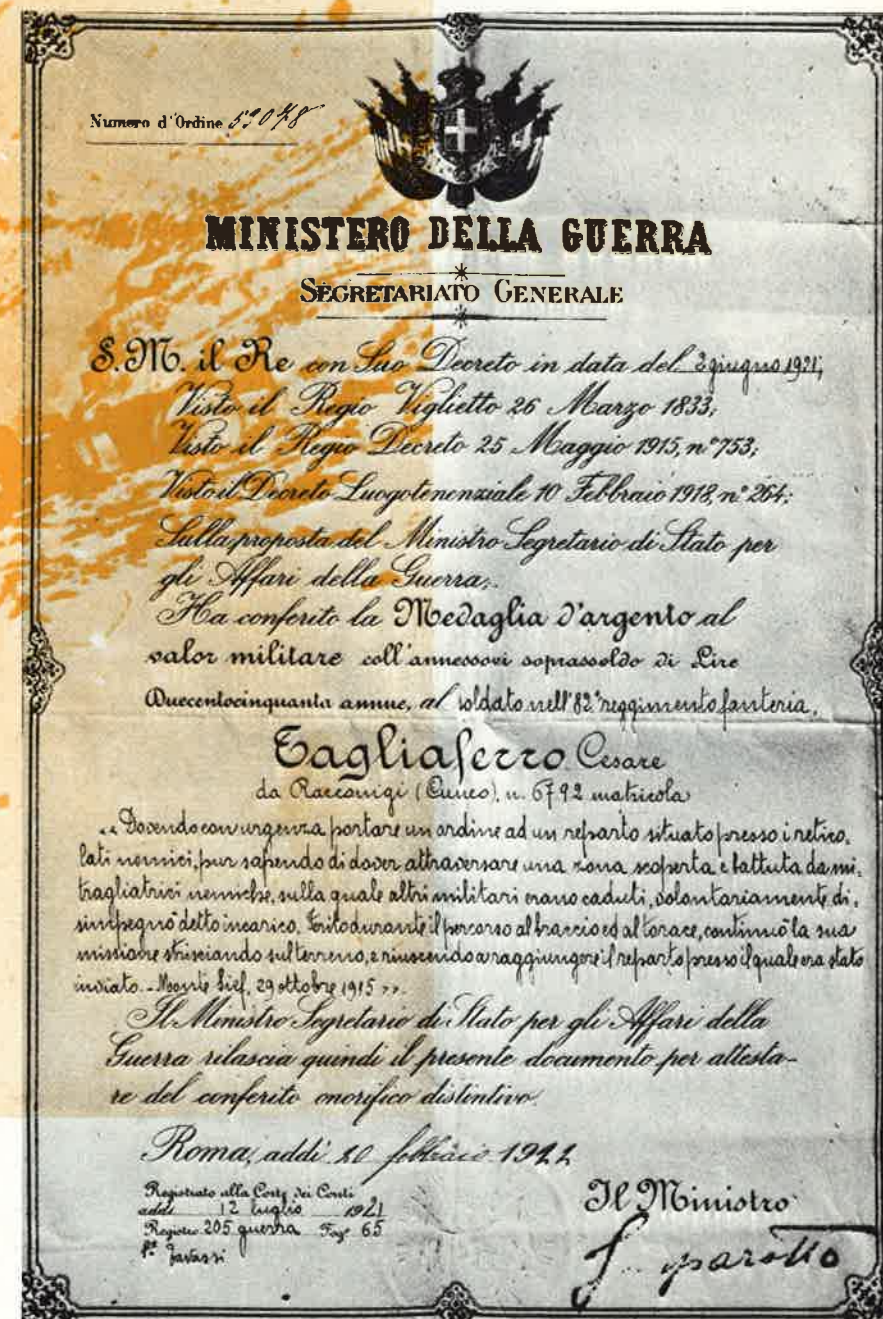 Numero d'Ordine 53078
MINISTERO DELLA GUERRA
SEGRETARIATO GENERALE
S. M. il Re con Suo Decreto in data del 2 giugno 1921;
Visto il Regio Viglietto 26 Marzo 1833;
Visto il Regio Decreto 25 Maggio 1915, n° 753;
Visto il Decreto Luogotenenziale 10 Febbraio 1918, n° 264;
Sulla proposta del Ministro Segretario di Stato per
gli Affari della Guerra;
Ha conferito la Medaglia d'argento al
valor militare coll'annessovi soprassoldo di Lire
Duecentocinquanta annue, al soldato nell'82° reggimento fanteria,
Tagliaferro Cesare
da Racconigi (Cuneo), n. 6792 matricola
"Dovendo con urgenza portare un ordine ad un reparto situato presso i retico,
lati nemici, pur sapendo di dover attraversare una zona scoperta e battuta da mi,
tragliatrici nemiche, sulla quale altri militari erano caduti, volontariamente di,
simpegnò detto incarico. Ferito durante il percorso al braccio ed al torace, continuò la sua
missione strisciando sul terreno, e riuscendo a raggiungere il reparto presso il quale era stato
inviato. - Monte Sief, 29 ottobre 1915 ".
Il Ministro Segretario di Stato per gli Affari della
Guerra rilascia quindi il presente documento per attesta-
re del conferito onorifico distintivo.
Roma, addì 20 febbraio 1922
Registrato alla Corte dei Conti
addì 12 luglio 1921
Registro 205 guerra Fog° 65
F°
Il Ministro